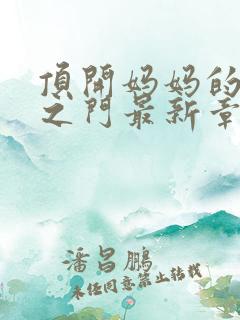 頂開妈妈的
之门最新章
潘昌鵬
未经同意禁止转载